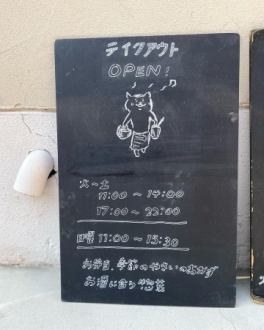 テイクアウト
OPEN!
火～土
11:00 ～ 14:00
17:00 ～ 22:00
日曜 11:00 ～ 15:30
お弁当、季節のやさいのおかず
お酒に合う惣菜